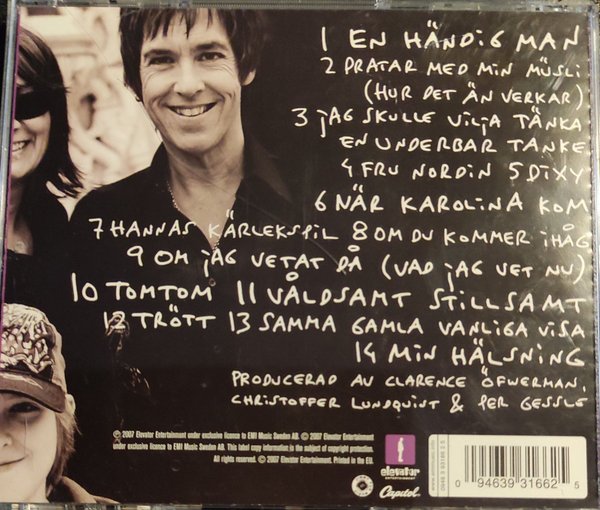 1 EN HÄNDIG MAN
2 PRATAR MED MIN MÜSLI
(HUR DET ÄN VERKAR)
3 JAG SKULLE VILJA TÄNKA
EN UNDERBAR TANKE
4 FRU NORDIN 5 DIXY
6 NÄR KAROLINA KOM
7 HANNAS KÄRLEKSPIL 8 OM DU KOMMER IHÅG
9 OM JAG VETAT DÅ (VAD JAG VET NU)
10 TOMTOM 11 VÅLDSAMT STILLSAMT
12 TRÖTT 13 SAMMA GAMLA VANLIGA VISA
14 MIN HÄLSNING
PRODUCERAD AV CLARENCE ÖFWERMAN,
CHRISTOFFER LUNDQUIST & PER GESSLE
℗ 2007 Elevator Entertainment under exclusive licence to EMI Music Sweden AB. © 2007 Elevator Entertainment
under exclusive licence to EMI Music Sweden AB. This label copy information is the subject of copyright protection.
All rights reserved. © 2007 Elevator Entertainment. Printed in the EU.
elevator
ENTERTAINMENT
Capitol
0 94639 31662 5